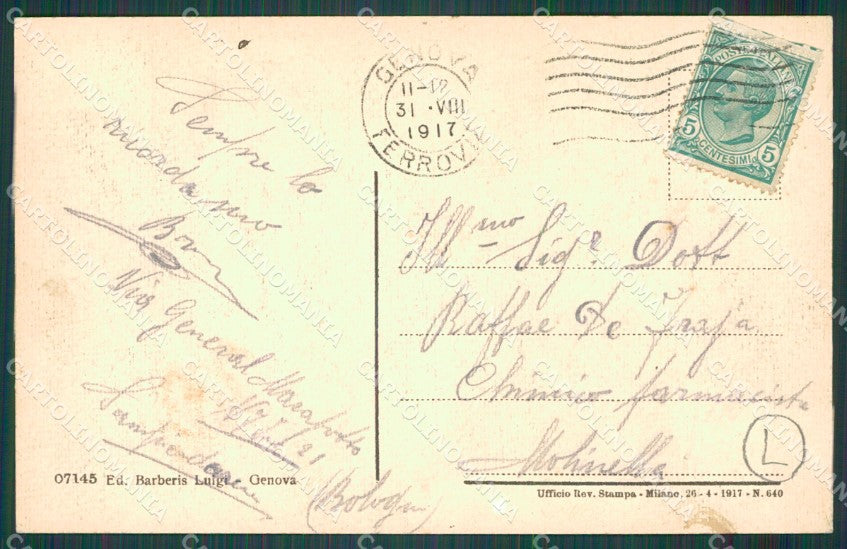 GENOVA
11-12
31 · VIII
1917
FERROVIA
POSTE ITALIANE
5 CENTESIMI 5
Sempre lo
ricordiamo
Via General
Sampierdarena
Ill.mo Sig.r Dott
Raffae De Fraja
Chimico farmacista
Molinella
(Bologna)
L
07145 Ed. Barberis Luigi - Genova
Ufficio Rev. Stampa - Milano, 26 - 4 - 1917 - N. 640
CARTOLINOMANIA